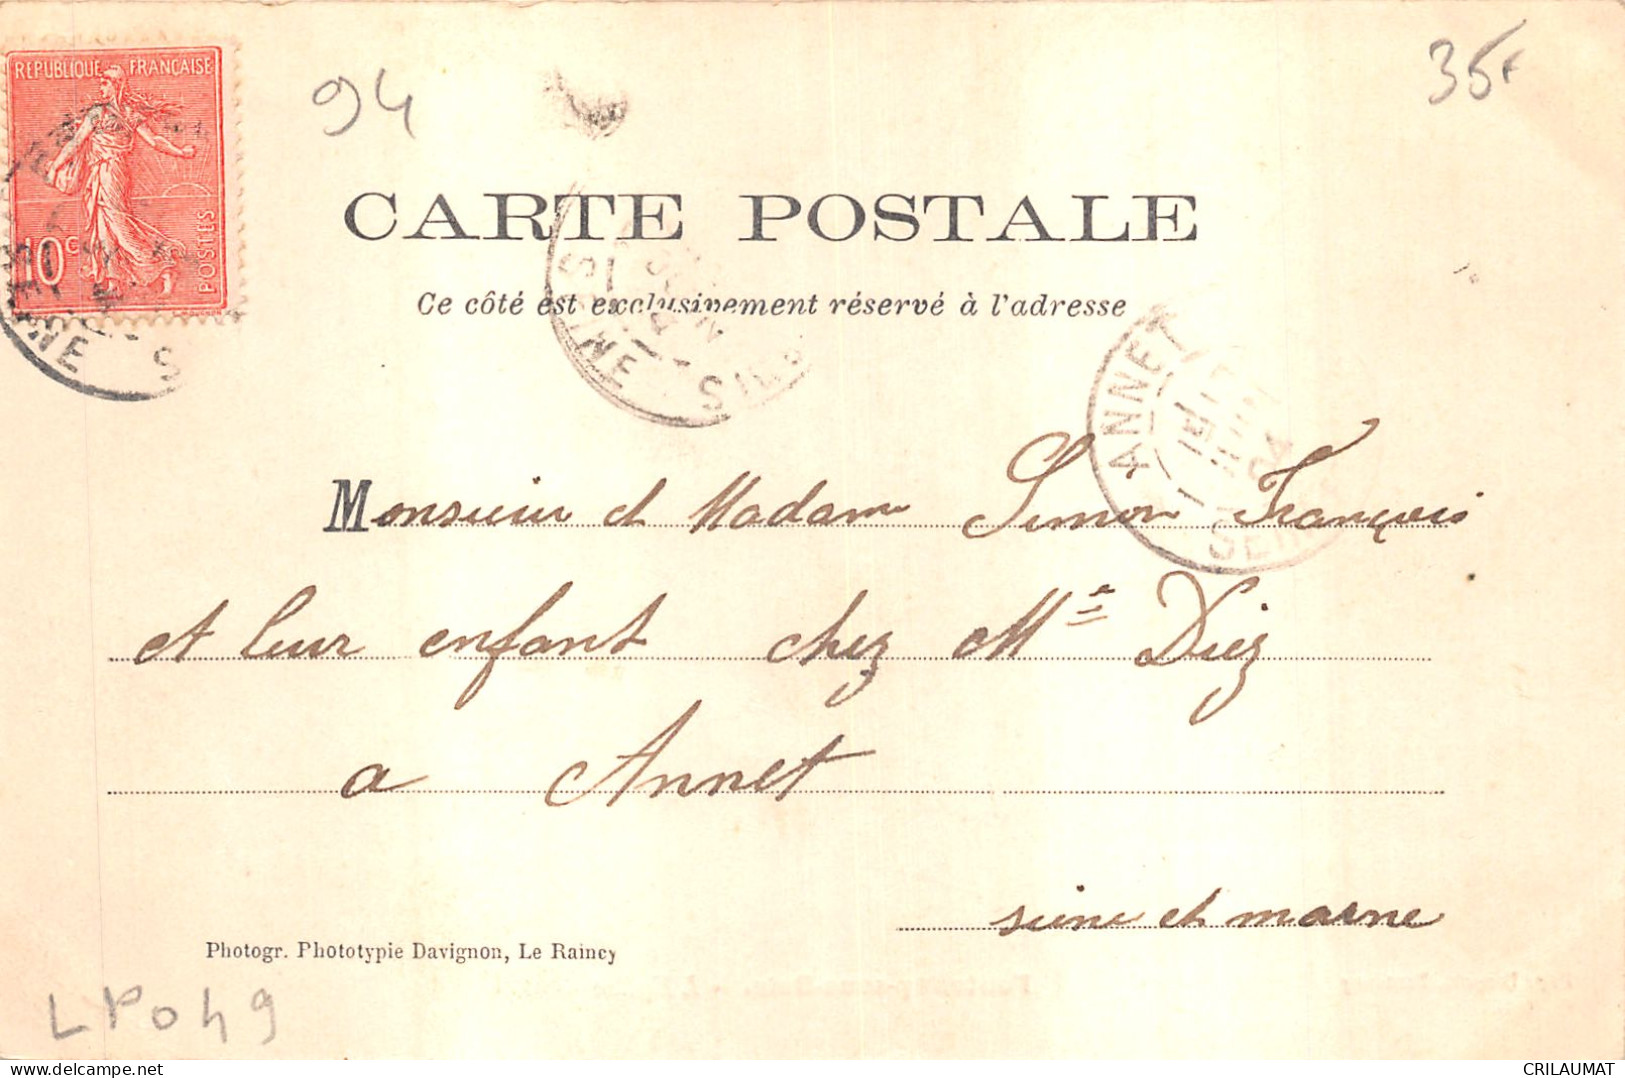 RÉPUBLIQUE FRANÇAISE
10c POSTES
94
35f
CARTE POSTALE
Ce côté est exclusivement réservé à l'adresse
SEINE
SEINE
ANNET
04
SEINE
Monsieur et Madame Simon François
et leur enfant chez Me Diez
a Annet
seine et marne
Photogr. Phototypie Davignon, Le Raincy
LP049
delcampe.net
CRILAUMAT